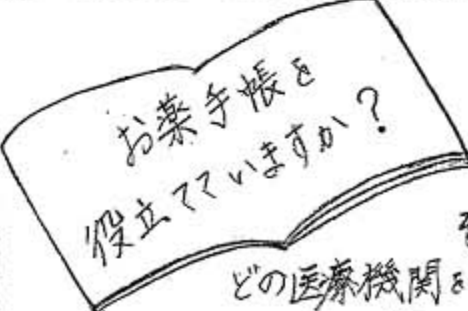 お薬手帳を
役立てていますか?
どの医療機関を